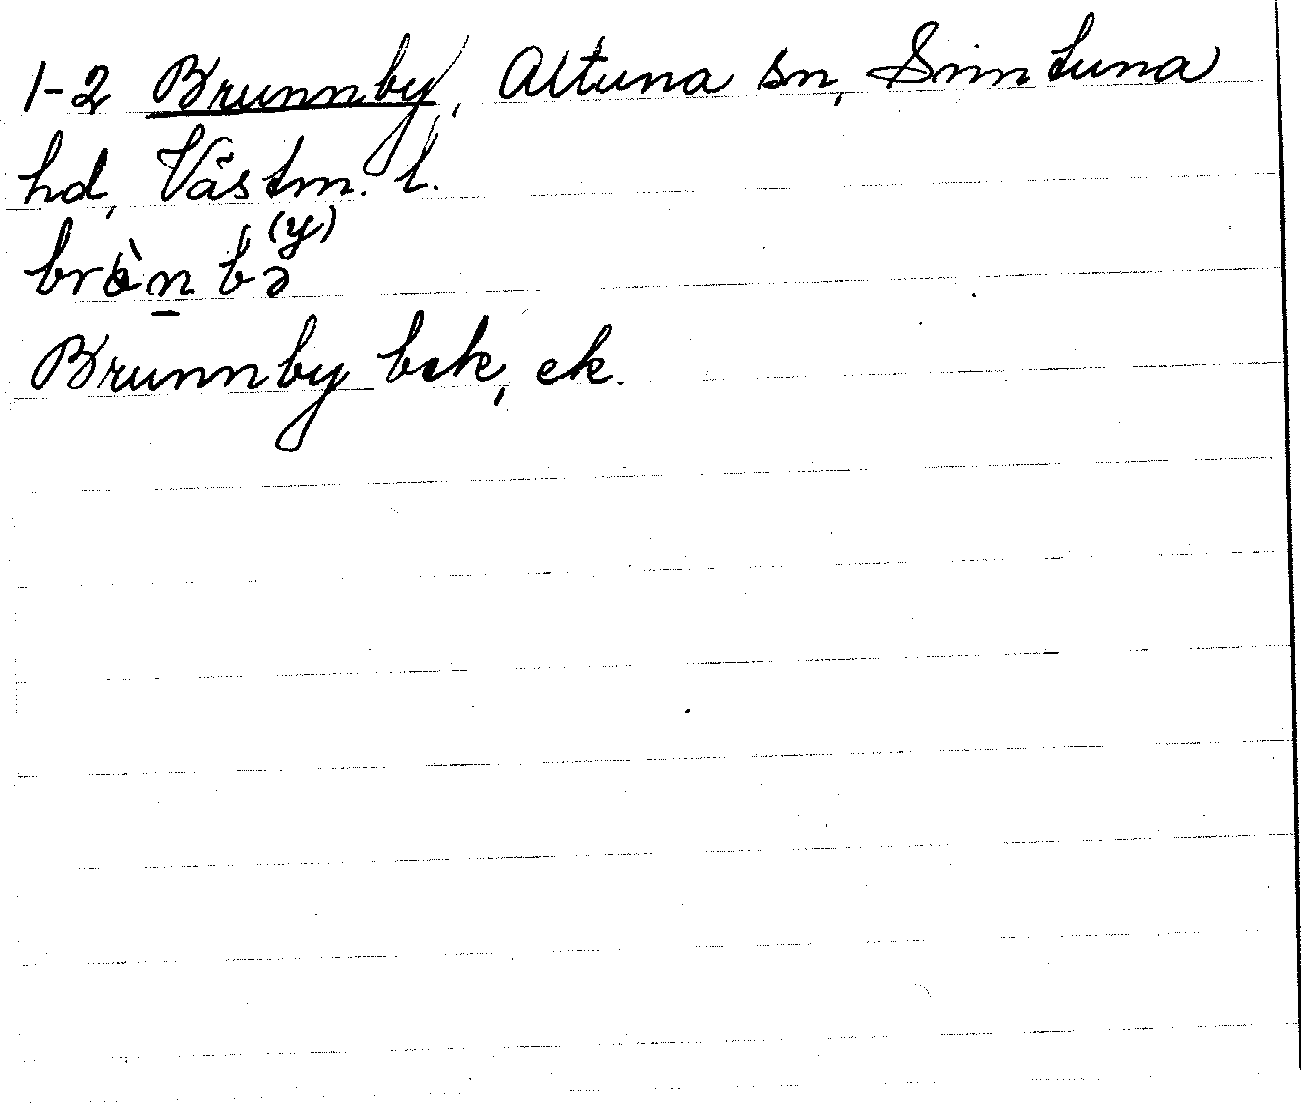 1-2 Brunnby, Altuna sn, Simtuna
hd, Västm. l.
brònbə(y)
Brunnby bek, ek.